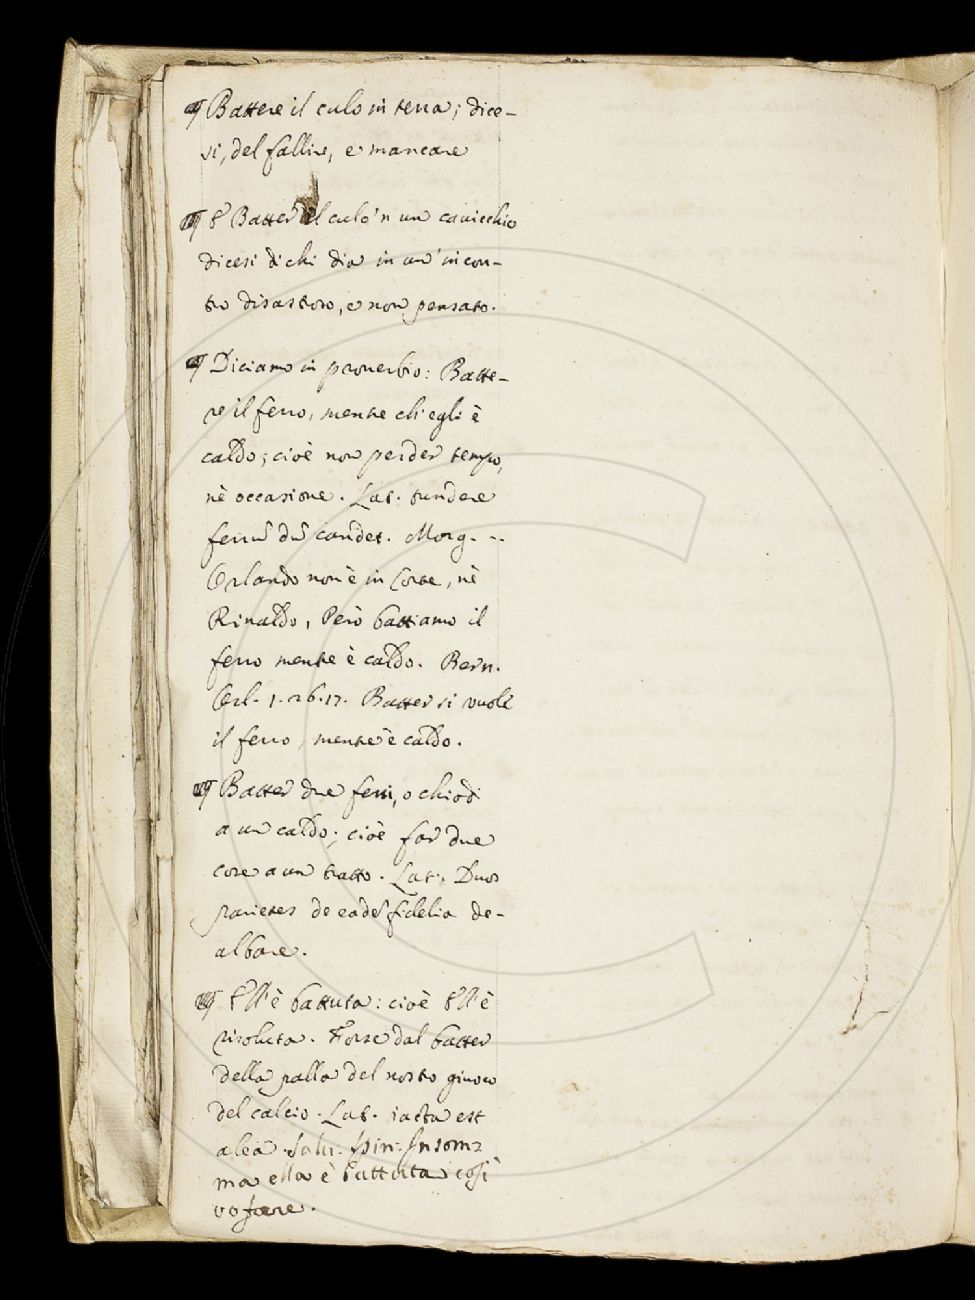 ¶ Battere il culo in terra; dice-
si, del fallire, e mancare
¶ E Batter il culo 'n un cavicchio
dicesi di chi dia in un' incon-
tro disastroso, e non pensato.
¶ Diciamo in proverbio: Batte-
re il ferro, mentre ch'egli è
caldo; cioè non perder tempo,
nè occasione. Lat. tundere
ferrū dū candet. Morg. - -
Orlando non è in Corte, nè
Rinaldo, Però battiamo il
ferro mentre è caldo. Bern.
Orl. 1. 26. 17. Batter si vuole
il ferro, mentre è caldo.
¶ Batter due ferri, o chiodi
a un caldo; cioè far due
cose a un tratto. Lat. Duos
parietes de eadē fidelia de-
albare.
¶ Ell'è battuta: cioè Ell'è
risoluta. Forse dal batter
della palla del nostro giuoco
del calcio. Lat. iacta est
alea. Salu: Spin: Insom=
ma ella è battuta così
vo fare.